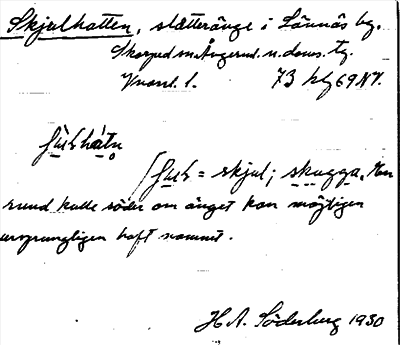 Skjulhatten, slätteränge i Lännäs by,
Skorped sn. Ångerml. n. doms. tg.
Kvarnl. 1. 73 hg 69 NV.
= skjul; skugga. En
rund kulle söder om änget kan möjligen
ursprungligen haft namnet.
H.A. Söderberg 1930